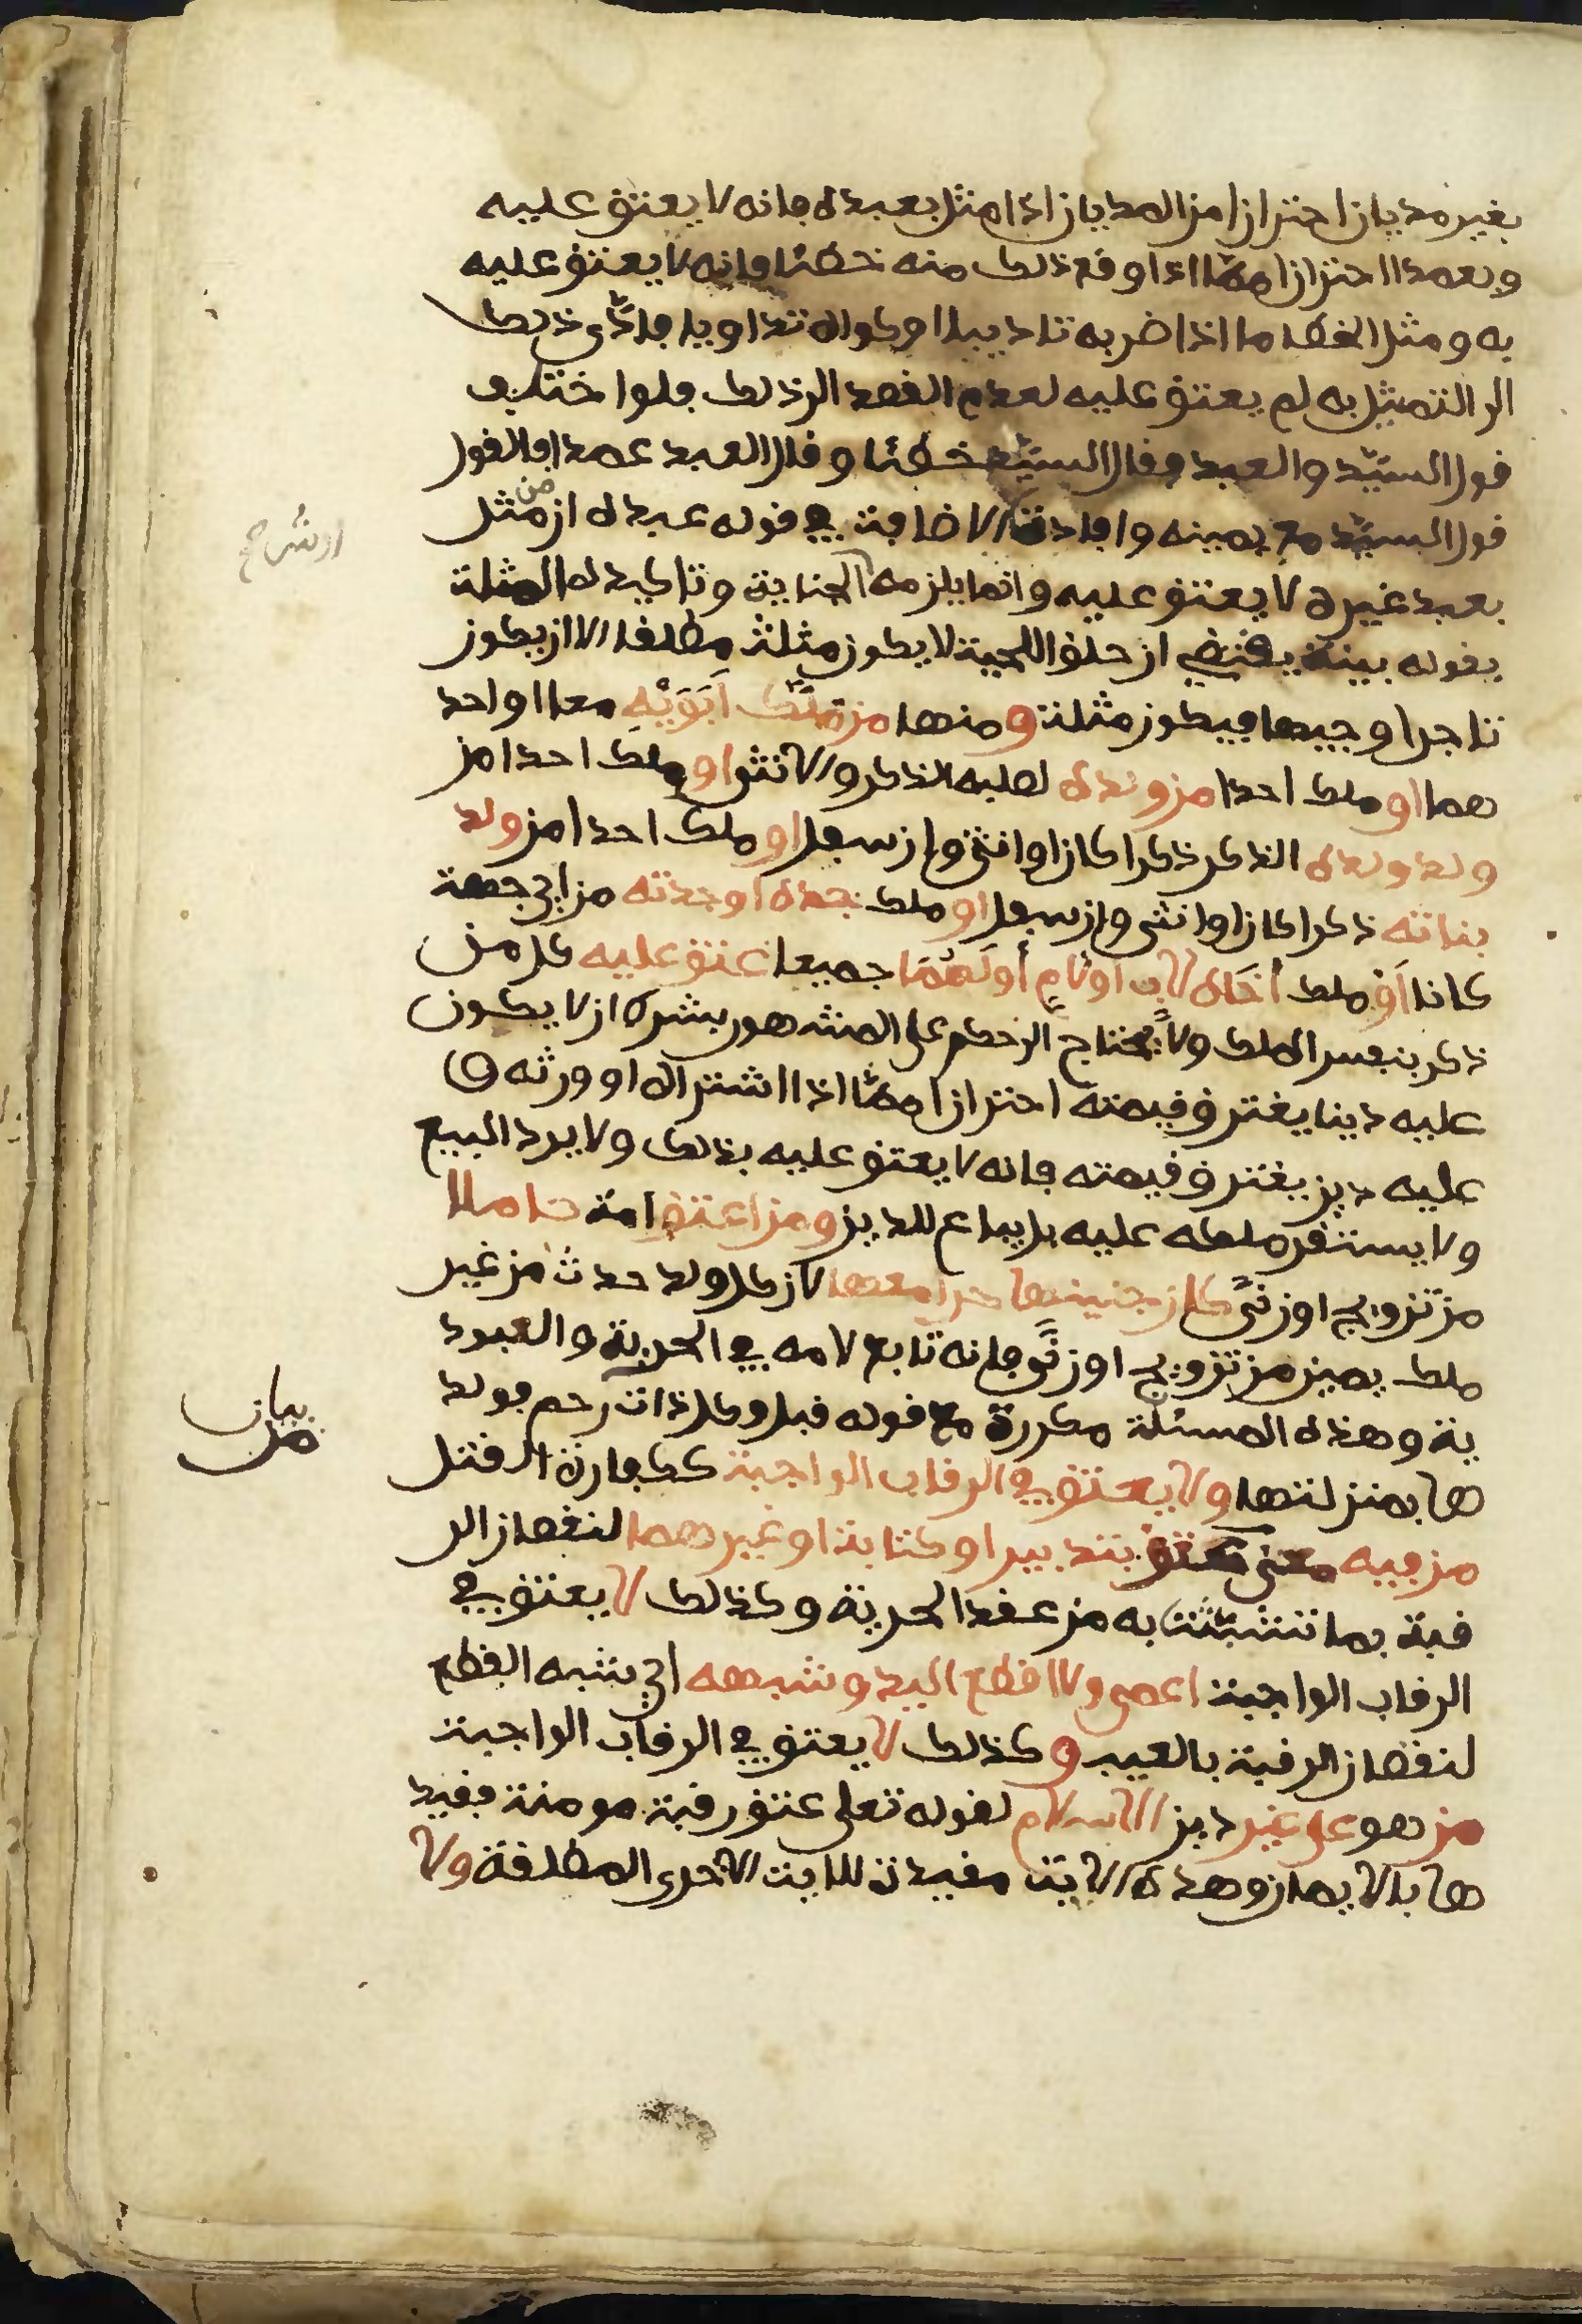 بغير مديان احترازا من المديان اذا مثل بعبده فانه لا يعتق عليه
وبعمدا احترازا مما اذا وقع ذلك منه خطئا فانه لا يعتق عليه
به ومثل الخطا ما اذا ضربه تاديبا او كواه تداويا فادّى ذلك
الى التمثيل به لم يعتق عليه لعدم القصد الى ذلك فلو اختلف
قول السيّد والعبد فقال السيّد خطئا وقال العبد عمدا فالقول
قول السيّد مع يمينه وافادت الاضافة في قوله عبده ان من مثل
بعبد غيره لا يعتق عليه وانما يلزمه الجناية وتاكيده المثلة
بقوله بينة يقتضي ان حلق اللحية لا يكون مثلة مطلقا الا ان يكون
تاجرا وجيها فيكون مثلة ومنها من مَلَك اَبَوَيْهِ معا او احد
هما او ملك احدا من ولده لصلبه الذكر والانثى او ملك احدا من
ولد ولده الذكر ذكرا كان او انثى وان سفل او ملك احدا من ولد
بناته ذكرا كان او انثى وان سفل او ملك جده او جدته من اي جهة
كانا اَوْ ملك اَخَاه لاب او لام أو لَهُمَا جميعا عتق عليه كل من
ذكر بنفس الملك ولا يحتاج الى حكم على المشهور بشرط ان لا يكون
عليه دينا يغترق قيمته احترازا مما اذا اشتراه او ورثه و
عليه دين يغترق قيمته فانه لا يعتق عليه بذلك ولا يرد البيع
ولا يستقر ملكه عليه بل يباع للدين ومن اعتق امة حاملا
من تزويج او زنًى كان جنينها حرا معها لان كل ولد حدث من غير
ملك يمين من تزويج او زنًى فانه تابع لامه في الحرية والعبود
ية وهذه المسئلة مكررة مع قوله قبل وكل ذات رحم فولد
ها بمنزلتها ولا يعتق في الرقاب الواجبة ككفارة القتل
من فيه معنى عتق بتدبير او كتابة او غيرهما لنقصان الر
قبة بما تشبّثت به من عقد الحرية وكذلك لا يعتق في
الرقاب الواجبة اعمى ولا اقطع اليد وشبهه اي شبه القطع
لنقصان الرقبة بالعيب وكذلك لا يعتق في الرقاب الواجبة
من هو على غير دين الاسلام لقوله تعلى عتق رقبة مومنة فقيد
ها بالايمان وهذه الاية مفيدة للاية الاخرى المطلقة ولا
بيان
من